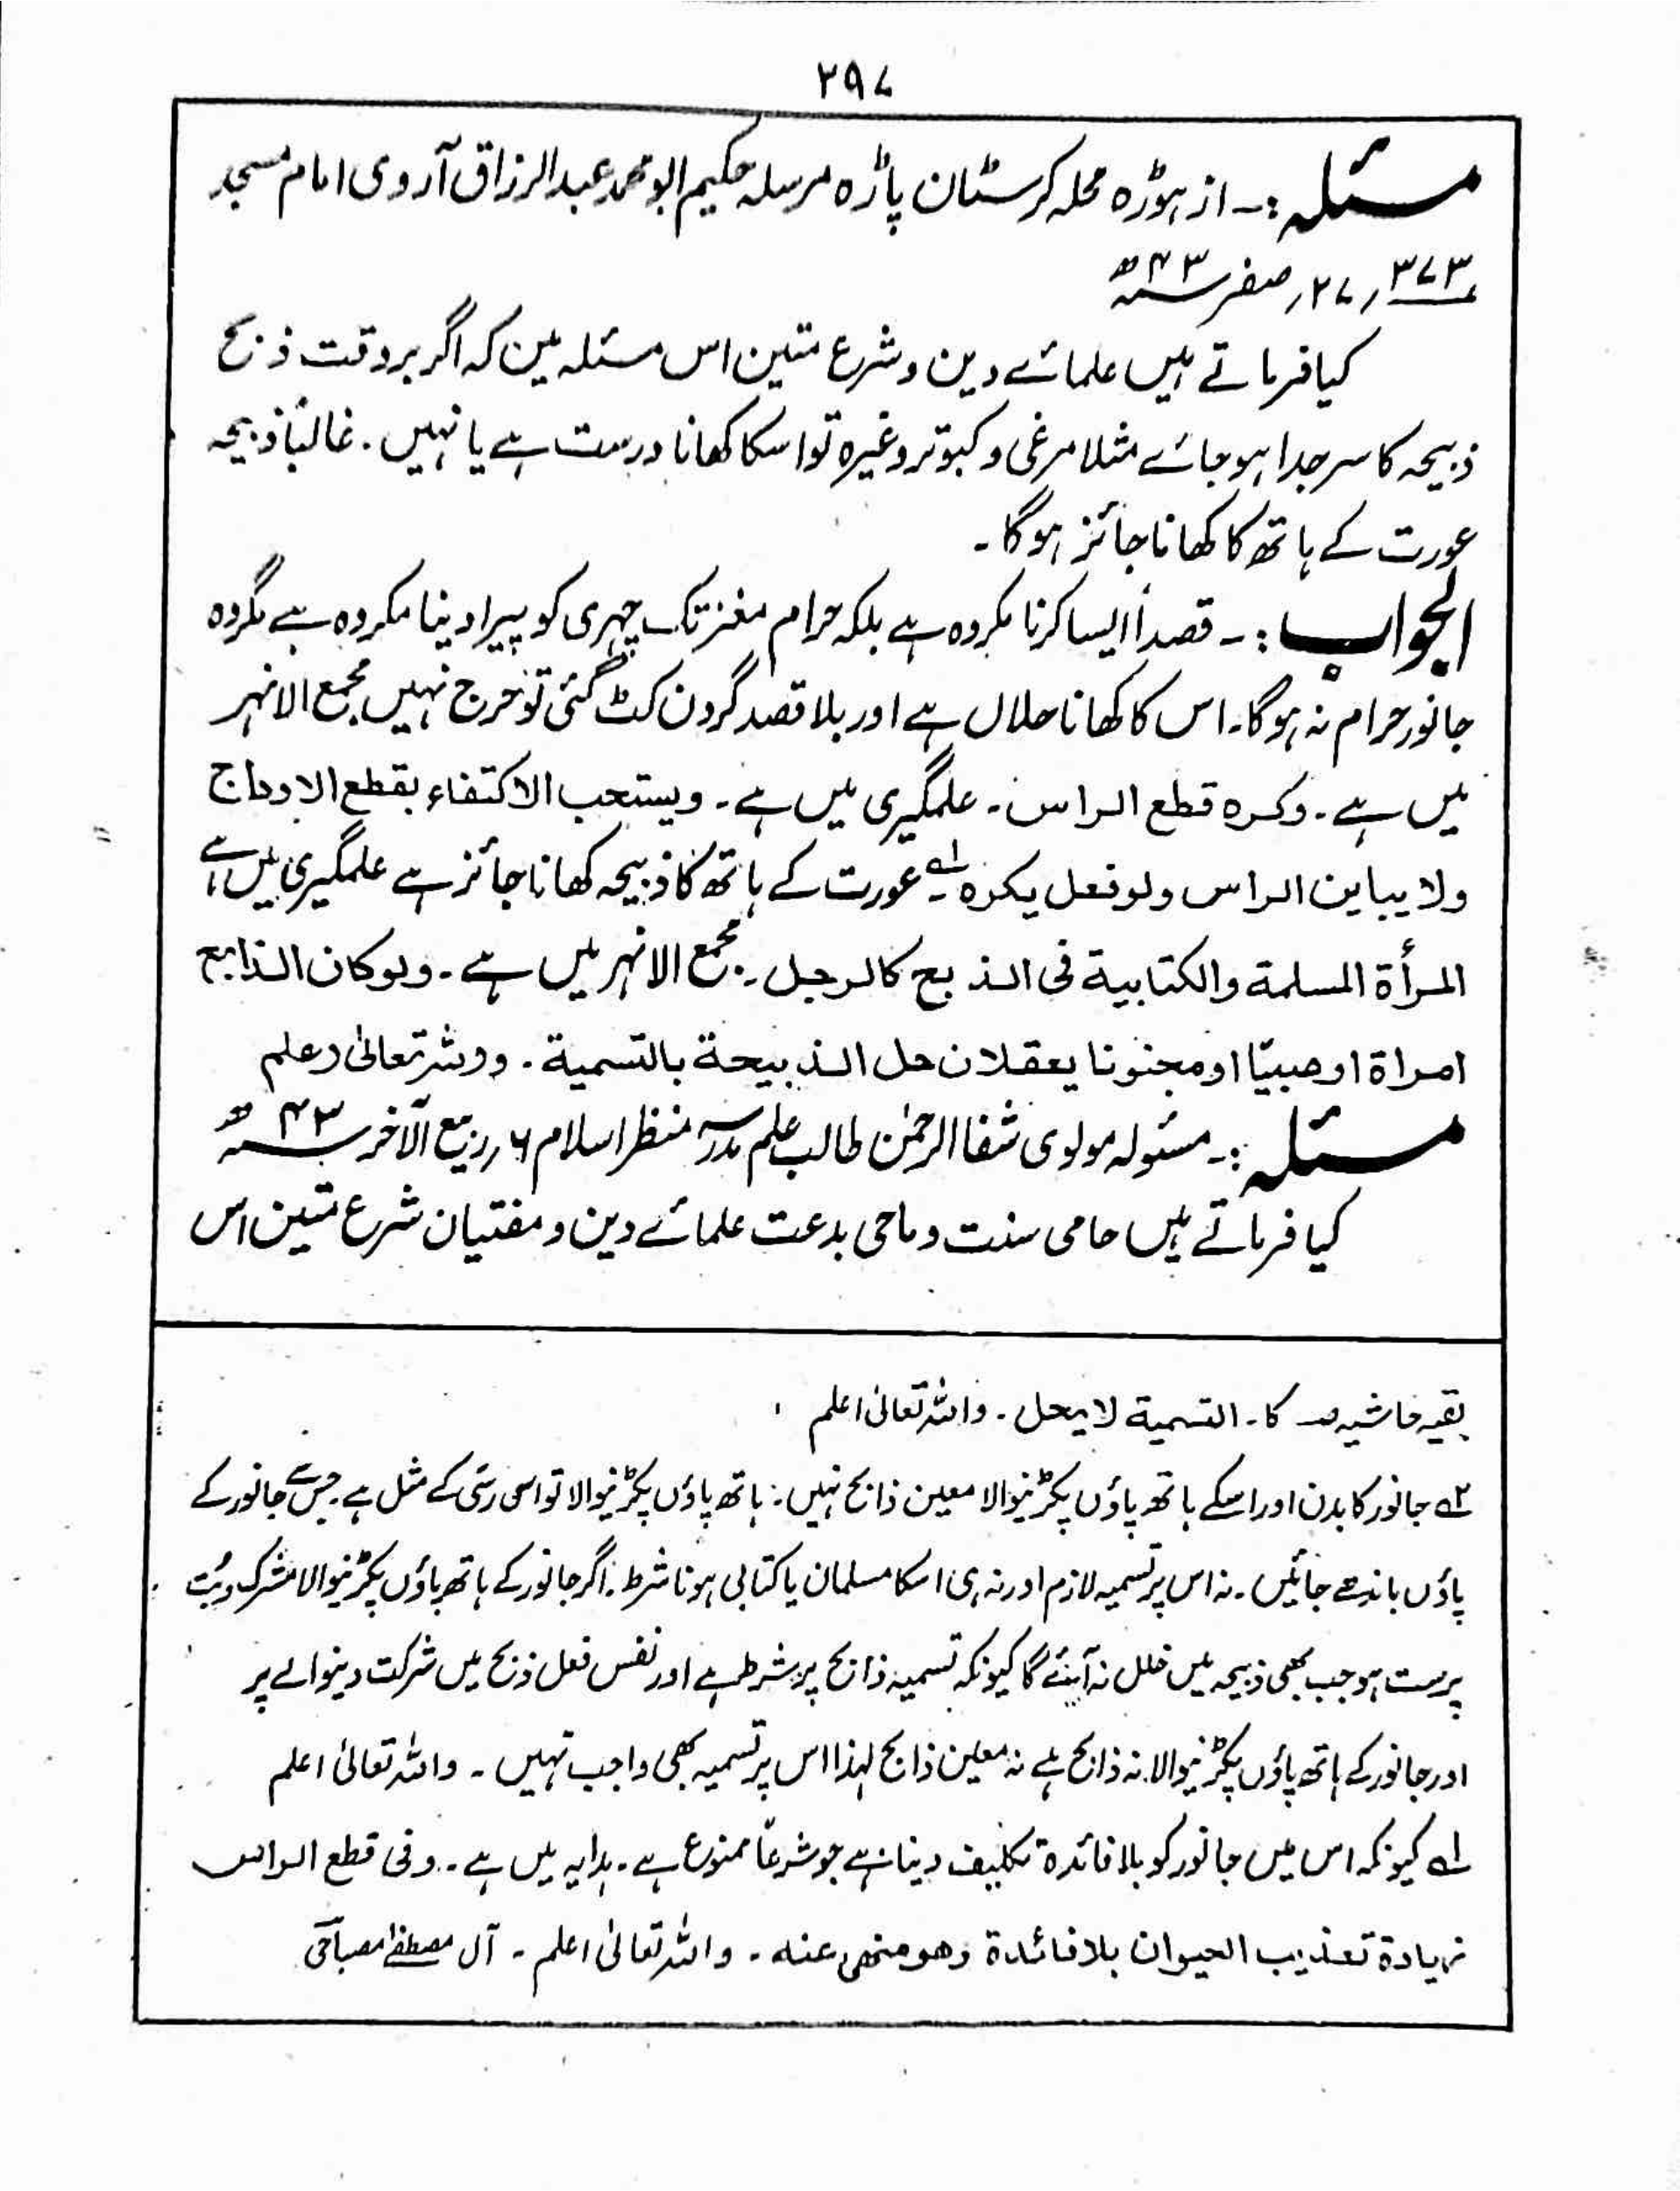 ۲۹۷
مسئلہ:۔ از ہوڑہ محلہ کرسٹان پاڑہ مرسلہ حکیم ابو محمد عبدالرزاق آروی امام مسجد
۳۷۳ ۲۷؍ صفر ۴۳ھ
کیا فرماتے ہیں علمائے دین و شرع متین اس مسئلہ میں کہ اگر بر وقت ذبح
ذبیحہ کا سر جدا ہو جائے مثلا مرغی و کبوتر وغیرہ تو اسکا کھانا درست ہے یا نہیں۔ غالباً ذبیحہ
عورت کے ہاتھ کا کھانا جائز ہوگا۔
الجواب:۔ قصداً ایسا کرنا مکروہ ہے بلکہ حرام مغز تک چھری کو پیرا دینا مکروہ ہے مگر وہ
جانور حرام نہ ہوگا۔ اس کا کھانا حلال ہے اور بلا قصد گردن کٹ گئی تو حرج نہیں مجمع الانہر
میں ہے۔ وکرہ قطع الراس۔ علمگیری میں ہے۔ ویستحب الاکتفاء بقطع الاوداج
ولا یباین الراس ولو فعل یکرہ ؂۱ عورت کے ہاتھ کا ذبیحہ کھانا جائز ہے علمگیری میں ہے
المرأۃ المسلمۃ والکتابیۃ فی الذبح کالرجل۔ مجمع الانہر میں ہے۔ ولو کان الذابح
امراۃ او صبیّا او مجنونا یعقلان حل الذبیحۃ بالتسمیۃ۔ واللہ تعالیٰ اعلم
مسئلہ:۔ مسئولہ مولوی شفاالرحمٰن طالب علم مدرسہ منظر اسلام ۶؍ ربیع الآخر ۴۳ھ
کیا فرماتے ہیں حامی سنت و ماحی بدعت علمائے دین و مفتیان شرع متین اس
بقیہ حاشیہ صـ کا۔ التسمیۃ لا یحل۔ واللہ تعالیٰ اعلم
؂۲ جانور کا بدن اور اسکے ہاتھ پاؤں پکڑنیوالا معین ذابح نہیں۔ ہاتھ پاؤں پکڑنیوالا تو اسی رسّی کے مثل ہے۔ جس سے جانور کے
پاؤں باندھے جائیں۔ نہ اس پر تسمیہ لازم اور نہ ہی اسکا مسلمان یا کتابی ہونا شرط۔ اگر جانور کے ہاتھ پاؤں پکڑنیوالا مشرک و بُت
پرست ہو جب بھی ذبیحہ میں خلل نہ آئے گا کیونکہ تسمیہ ذابح پر شرط ہے اور نفس فعل ذبح میں شرکت دینوالے پر
اور جانور کے ہاتھ پاؤں پکڑنیوالا نہ ذابح ہے نہ معین ذابح لہذا اس پر تسمیہ بھی واجب نہیں۔ واللہ تعالیٰ اعلم
؂۱ کیونکہ اس میں جانور کو بلا فائدۃ تکلیف دینا ہے جو شرعاً ممنوع ہے۔ ہدایہ میں ہے۔ وفی قطع الراس
زیادۃ تعذیب الحیوان بلا فائدۃ وھو منھی عنہ۔ واللہ تعالیٰ اعلم۔ آل مصطفےٰ مصباحی